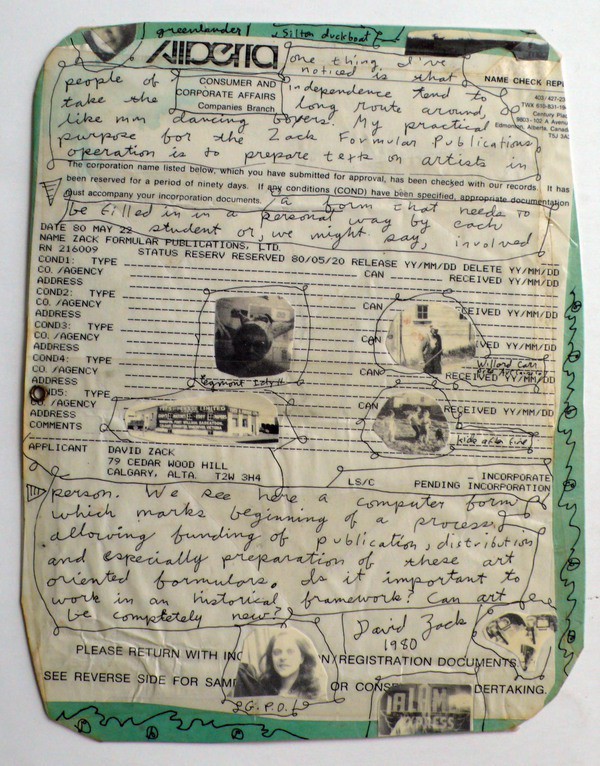 greenlander
Silton duckboat
Alberta
one thing I've
noticed is that
people of
CONSUMER AND
independence tend to
NAME CHECK REP
take the
CORPORATE AFFAIRS
long route around,
Companies Branch
like mm dancing boxers. My practical
purpose for the Zack Formular Publications
Edmonton, Alberta, Canada
operation is to prepare texts on artists in
The corporation name listed below, which you have submitted for approval, has been checked with our records. It has
been reserved for a period of ninety days. If any conditions (COND) have been specified, appropriate documentation
must accompany your incorporation documents.
a form that needs to
be filled in in a personal way by each
DATE 80 MAY 22 student or, we might say, involved
NAME ZACK FORMULAR PUBLICATIONS, LTD.
RN 216009 STATUS RESERV RESERVED 80/05/20 RELEASE YY/MM/DD DELETE YY/MM/DD
COND1: TYPE
CO./AGENCY CAN RECEIVED YY/MM/DD
ADDRESS
COND2: TYPE
CO./AGENCY CAN CEIVED YY/MM/DD
ADDRESS
COND3: TYPE
CO./AGENCY CAN IVED YY/MM/DD
ADDRESS
COND4: TYPE
CO./AGENCY CAN RECEIVED YY/MM/DD
ADDRESS
ND5: TYPE
CO./AGENCY CAN ECEIVED YY/MM/DD
ADDRESS
kids after fire
COMMENTS
APPLICANT DAVID ZACK
79 CEDAR WOOD HILL
CALGARY, ALTA. T2W 3H4
LS/C — INCORPORATE
PENDING INCORPORATION
person. We see here a computer form
which marks beginning of a process
allowing funding of publication, distribution
and especially preparation of these art
oriented formulars. Is it important to
work in an historical framework? Can art
be completely new?
David Zack
1980
PLEASE RETURN WITH INC N/REGISTRATION DOCUMENTS
SEE REVERSE SIDE FOR SAM OR CONS DERTAKING.
G.P.O.
ALAMO
EXPRESS